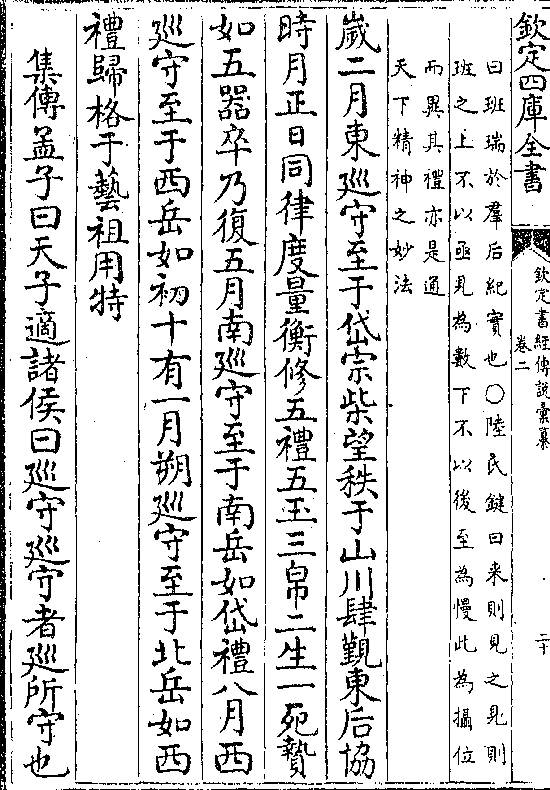 欽定四庫全書
欽定書經傳說彙纂
卷二
二十
曰班瑞於羣后紀實也○陸氏鍵曰来則見之見則
班之上不以亟見為數下不以後至為慢此為攝位
而異其禮亦是通
天下精神之妙法
歲二月東廵守至于岱宗柴望秩于山川肆覲東后協
時月正日同律度量衡修五禮五玉三帛二生一死贄
如五器卒乃復五月南廵守至于南岳如岱禮八月西
廵守至于西岳如初十有一月朔廵守至于北岳如西
禮歸格于藝祖用特
集傳孟子曰天子適諸侯曰廵守廵守者廵所守也